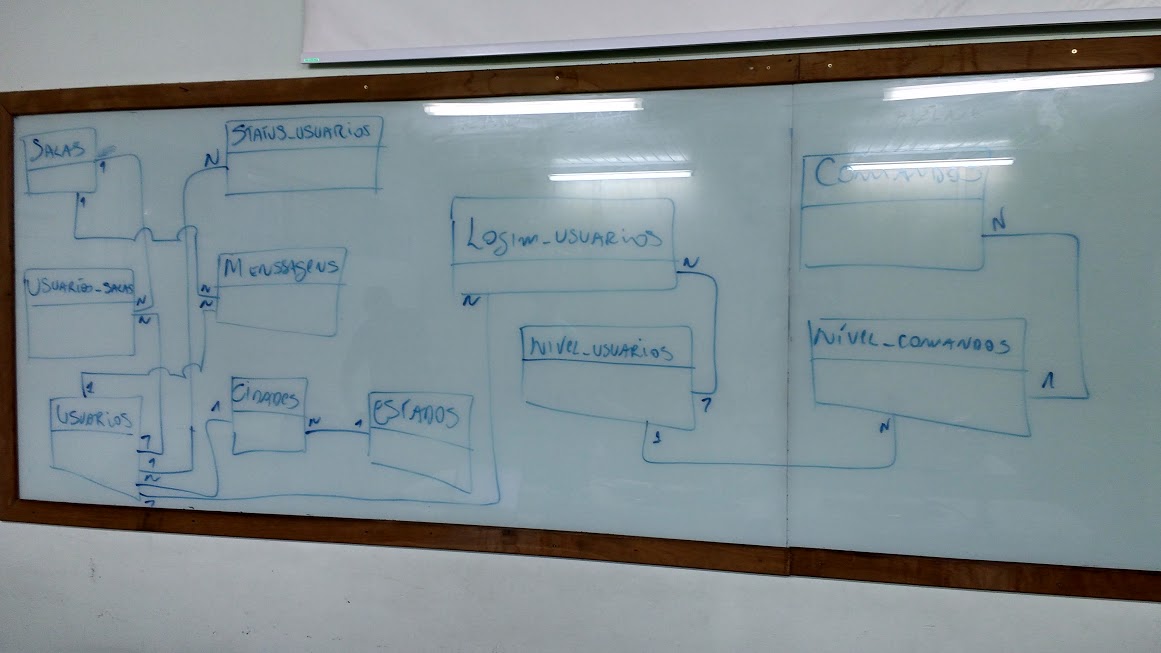 SALAS
1
1
STATUS_USUARIOS
N
USUARIOS_SALAS
N
N
MENSSAGENS
N
N
1
USUARIOS
1
1
N
1
CIDADES
1
N
ESTADOS
1
LOGIM_USUARIOS
N
N
NIVEL_USUARIOS
1
1
COMANDOS
N
NÍVEL_COMANDOS
1
N